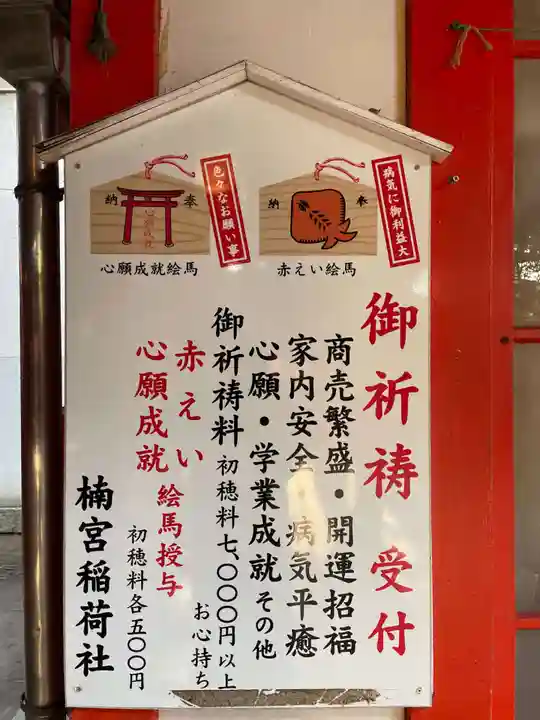 病気に御利益大
奉
納
赤えい絵馬
色々なお願い事
奉
納
心願成就絵馬
御祈祷 受付
商売繁盛・開運招福
家内安全・病気平癒
心願・学業成就 その他
御祈祷料 初穂料七、〇〇〇円以上
お心持ち
赤えい
心願成就 絵馬授与
初穂料各五〇〇円
楠宮稲荷社